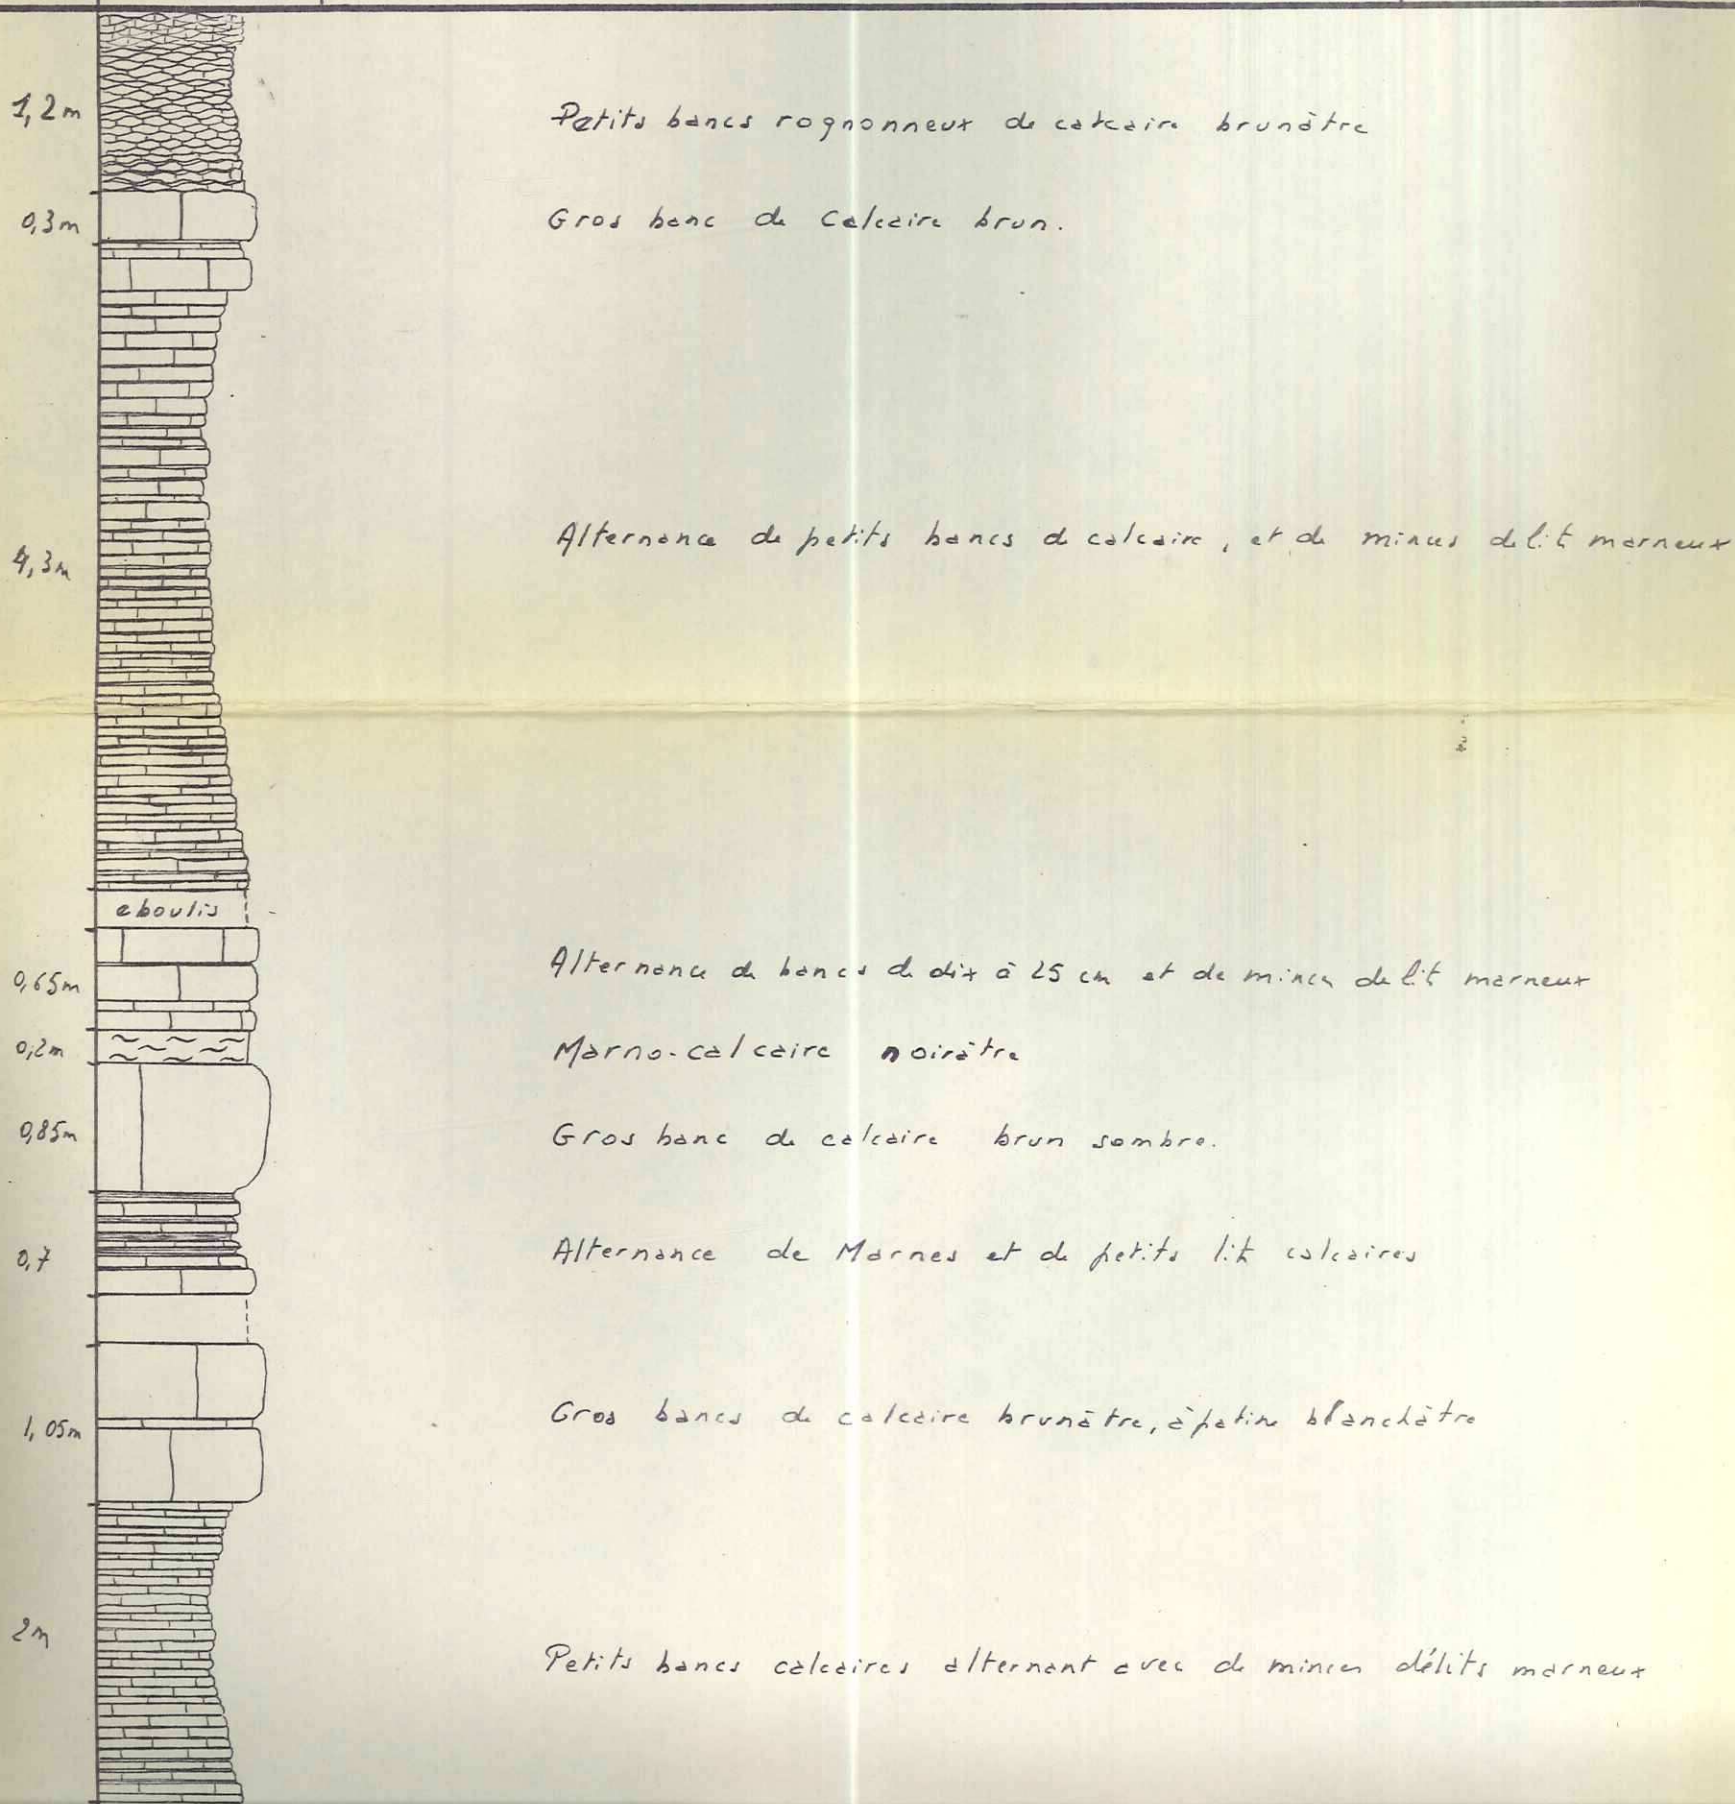 1,2m Petits bancs rognonneux de calcaire brunâtre
0,3m Gros banc de calcaire brun.
4,3m Alternance de petits bancs d calcaire, et de minces delit marneux
eboulis
0,65m Alternance de bancs de dix à 25 cm et de minces delit marneux
0,2m Marno-calcaire noirâtre
0,85m Gros banc de calcaire brun sombre.
0,7 Alternance de Marnes et de petits lit calcaires
1,05m Gros bancs de calcaire brunâtre, à patine blanchâtre
2m Petits bancs calcaires alternant avec de minces délits marneux